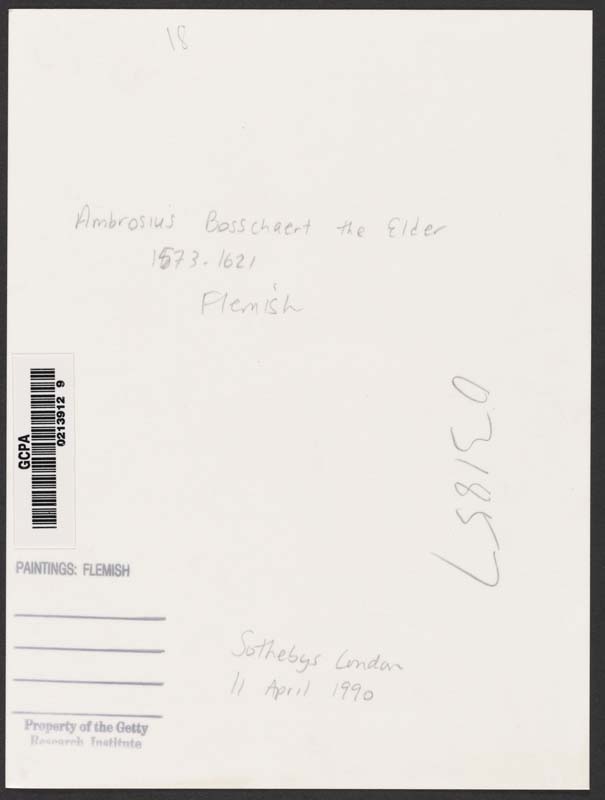 18
Ambrosius Bosschaert the Elder
1573-1621
Flemish
GCPA
0213912 9
031857
PAINTINGS: FLEMISH
Sothebys London
11 April 1990
Property of the Getty
Research Institute